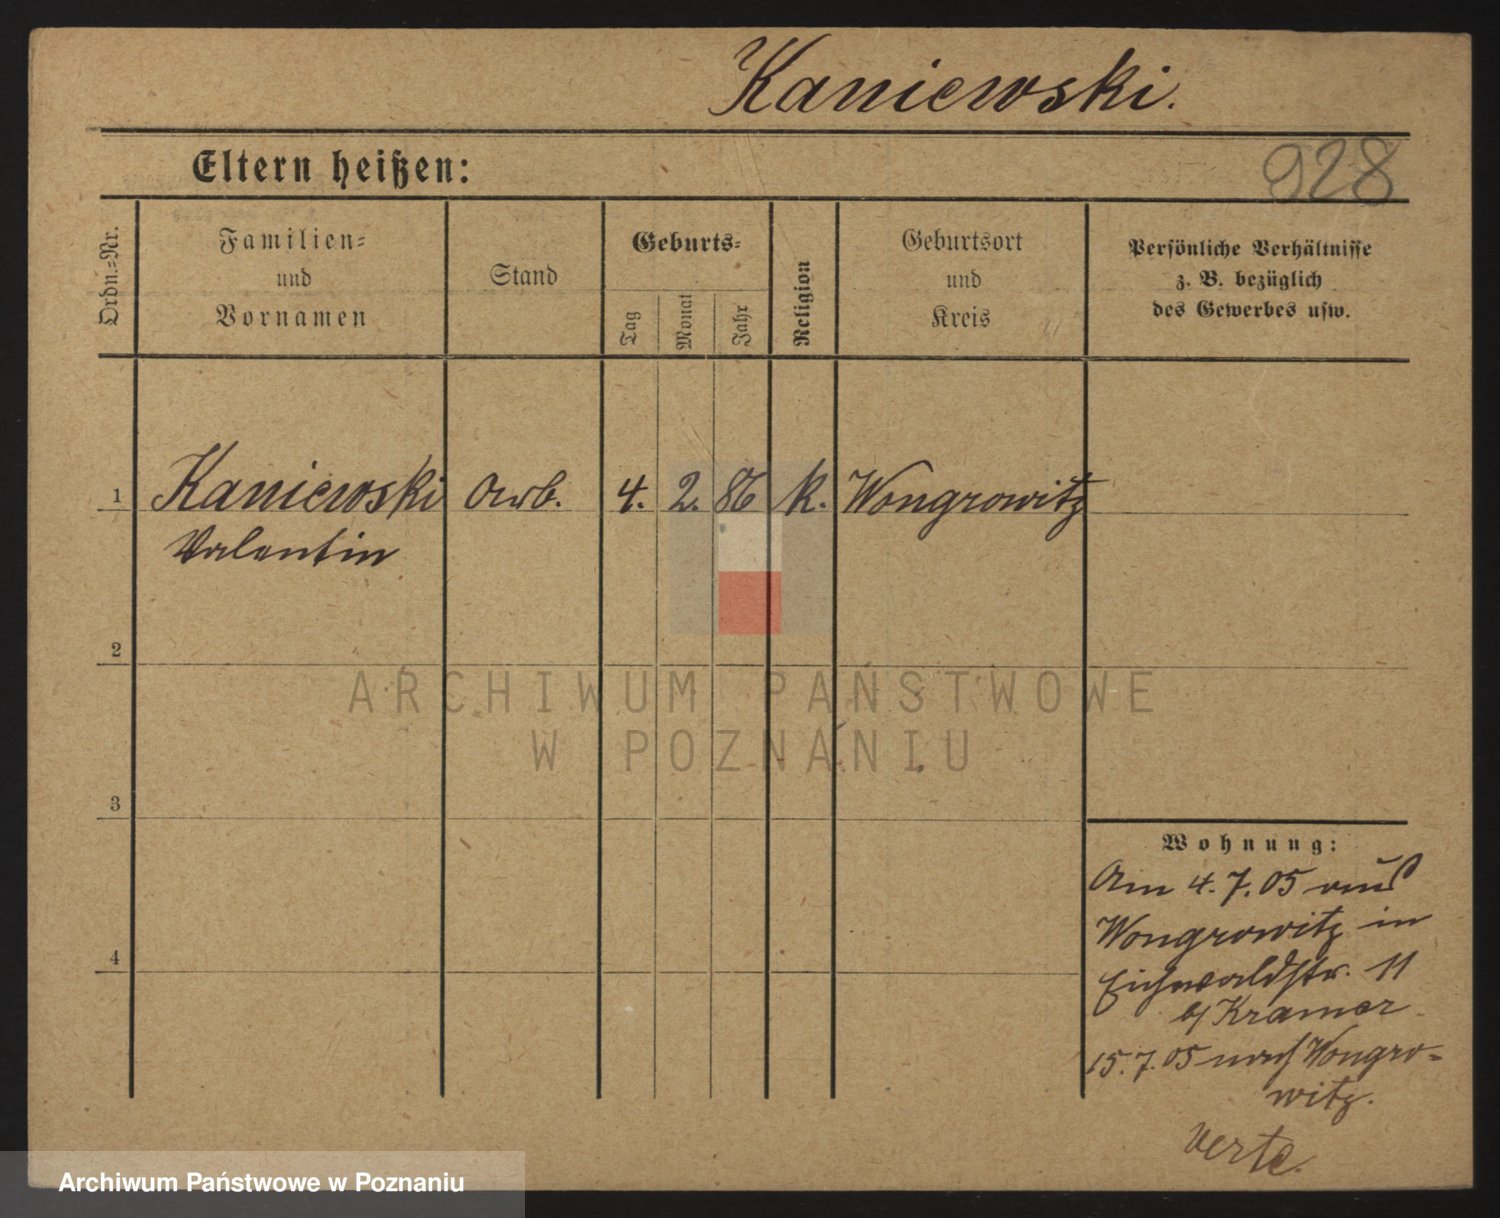 Kaniewski.
Eltern heißen:
928
Ordn.-Nr.
Familien-
und
Vornamen
Stand
Geburts-
Tag
Monat
Jahr
Religion
Geburtsort
und
Kreis
Persönliche Verhältnisse
z. B. bezüglich
des Gewerbes usw.
1 Kaniewski Arb. 4. 2. 86 k. Wongrowitz
Valentin
2
3
4
Wohnung:
Am 4.7.05 aus
Wongrowitz in
Eichwaldstr. 11
b/ Kramer
15.7.05 nach Wongro-
witz.
verte.
ARCHIWUM PAŃSTWOWE
W POZNANIU
Archiwum Państwowe w Poznaniu